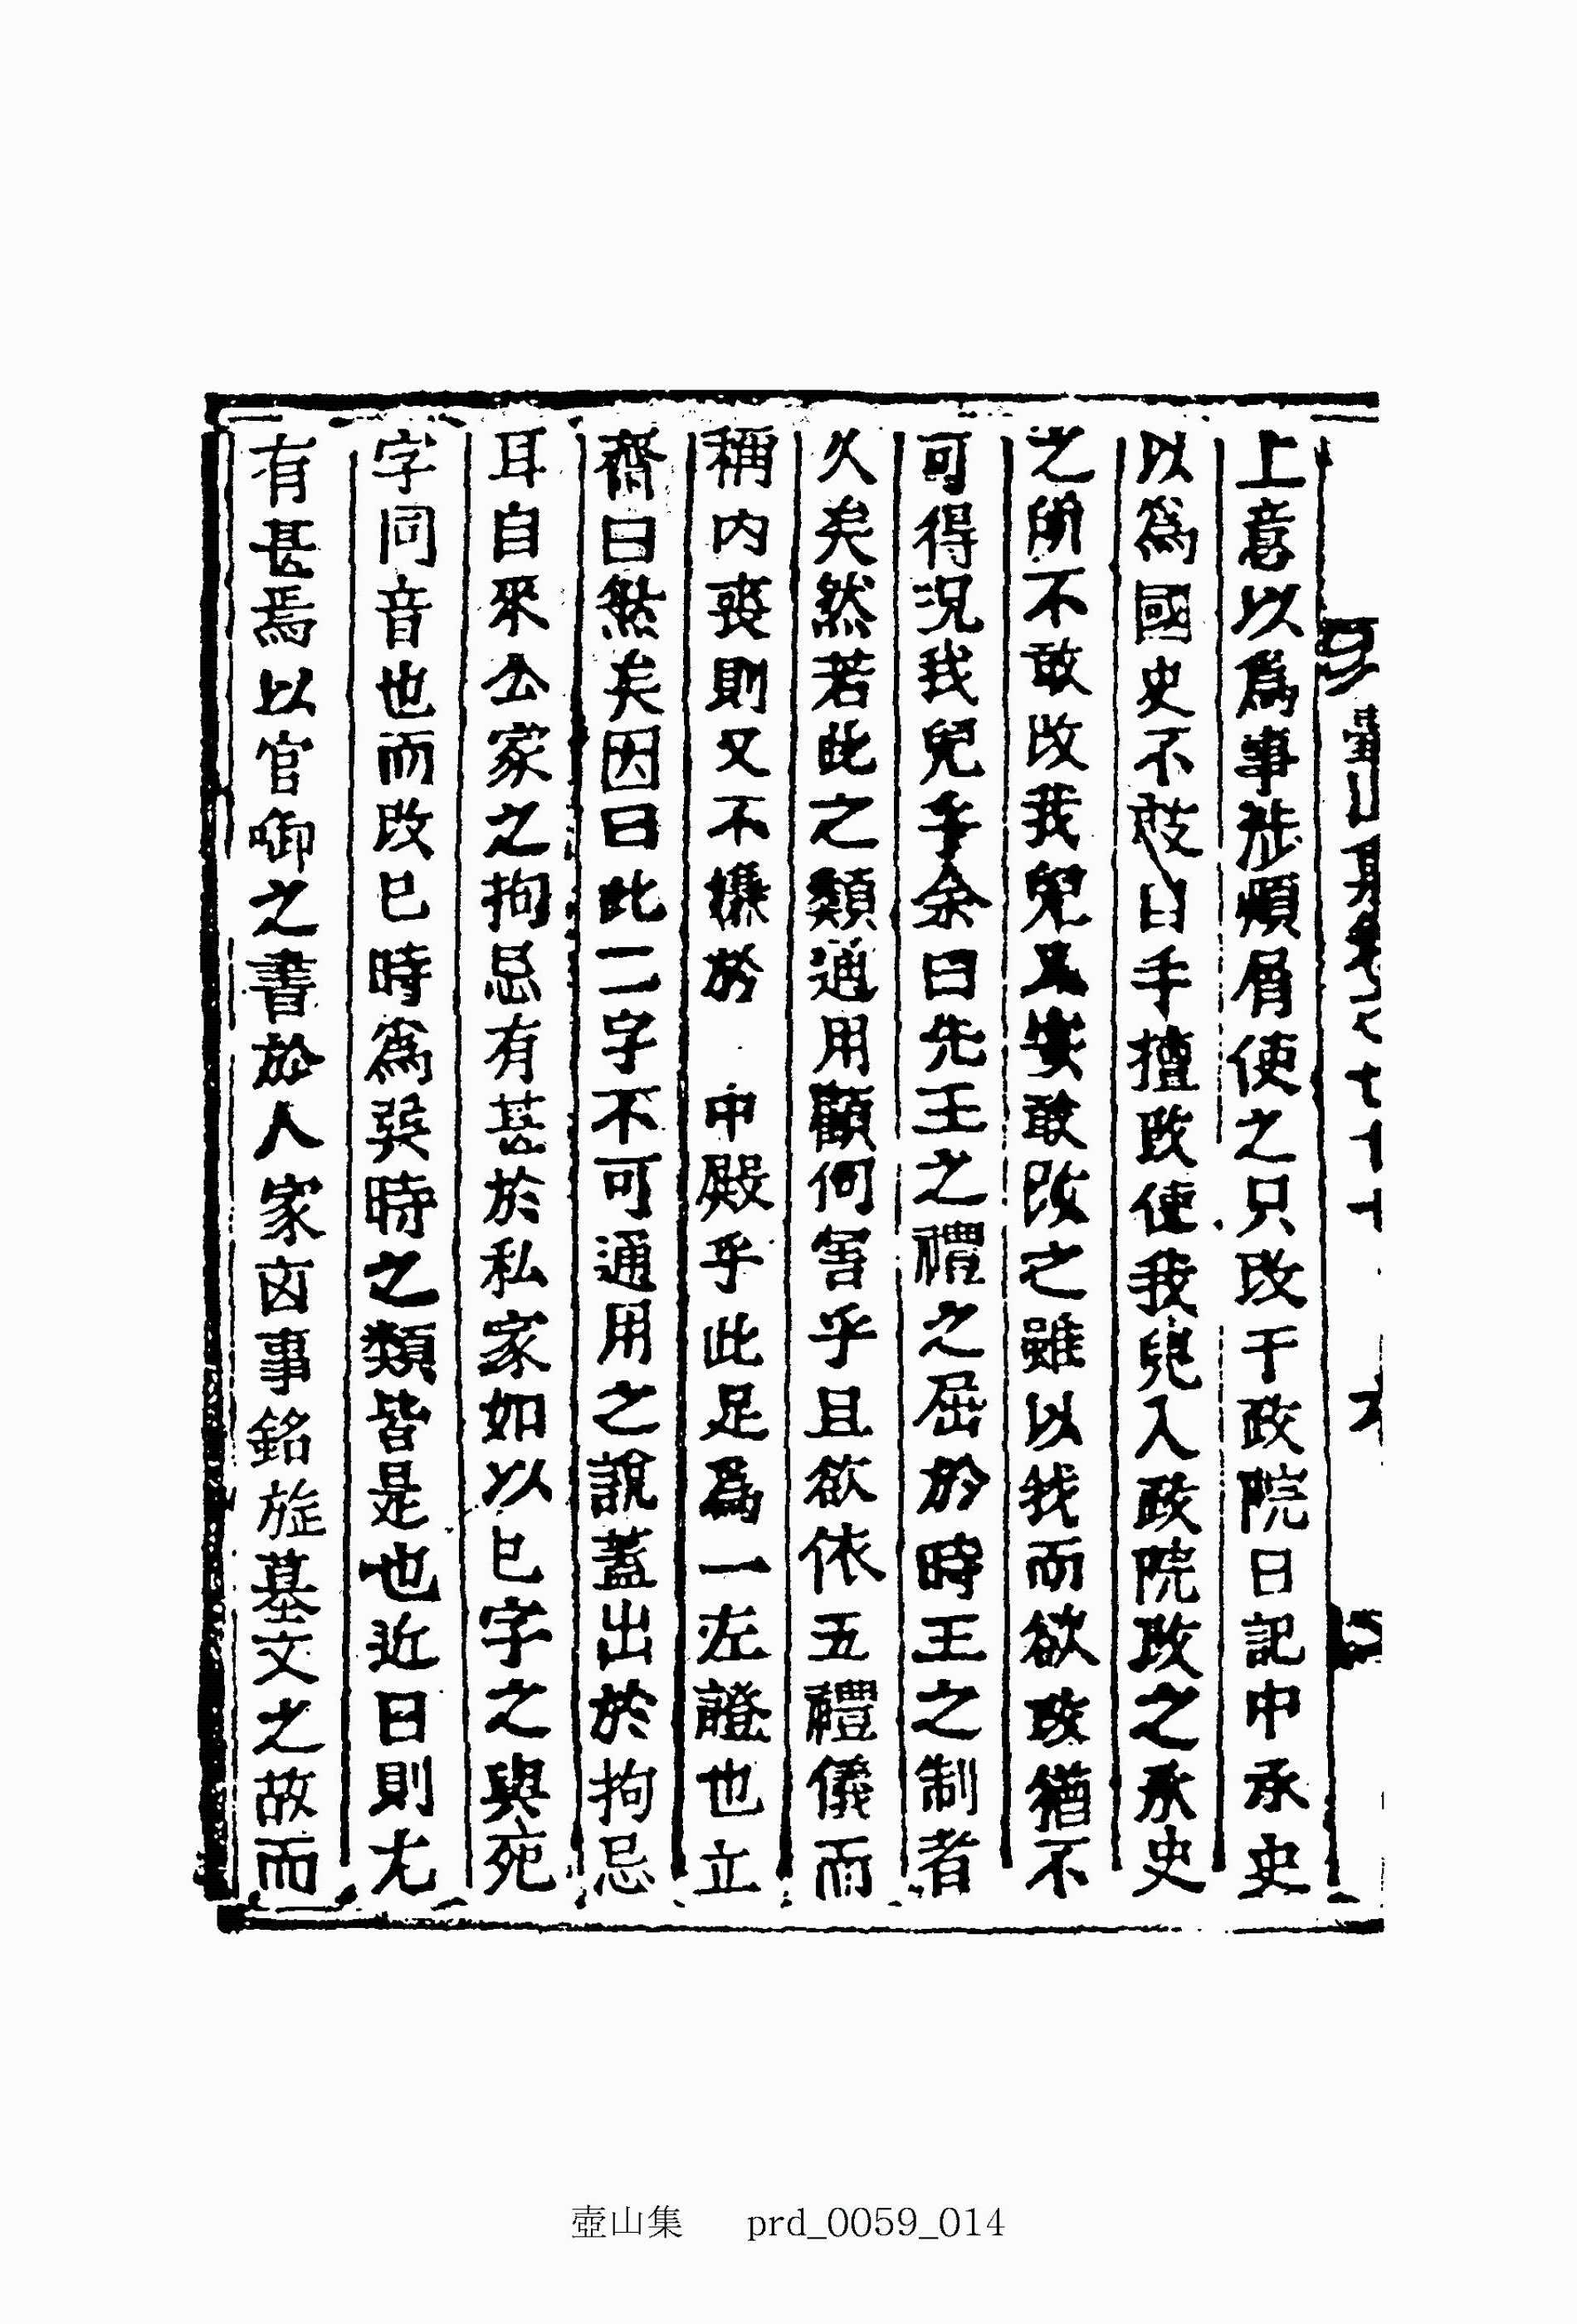 上意以爲事涉煩屑使之只改于政院日記中承史
以爲國史不敢自手擅改使我兒入政院改之承史
之所不敢改我兒又安敢改之雖以我而欲改猶不
可得況我兒乎余曰先王之禮之屈於時王之制者
久矣然若此之類通用顧何害乎且欲依五禮儀而
稱內喪則又不攝於 中殿乎此足爲一左證也立
齋曰然矣因曰此二字不可通用之說蓋出於拘忌
耳自來公家之拘忌有甚於私家如以巳字之與死
字同音也而改巳時爲巽時之類皆是也近日則尤
有甚焉以官啣之書於人家凶事銘旌墓文之故而
壺山集 prd_0059_014